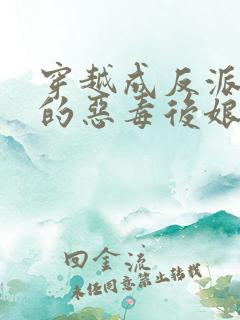 穿越成反派
的惡毒後娘
回金流
未经同意禁止转载